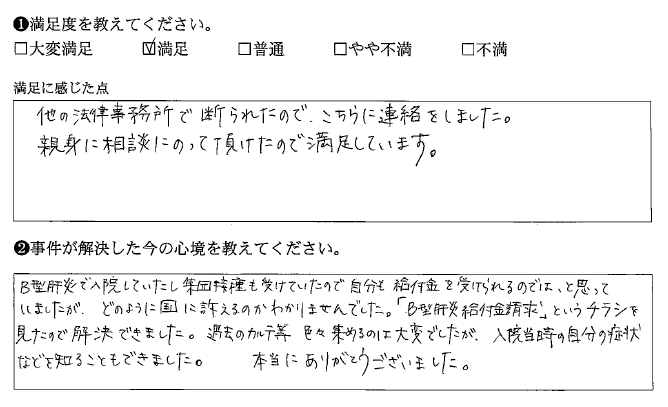 ❶満足度を教えてください。
□大変満足 ☑満足 □普通 □やや不満 □不満
満足に感じた点
他の法律事務所で断られたので、こちらに連絡をしました。
親身に相談にのって頂けたので満足しています。
❷事件が解決した今の心境を教えてください。
B型肝炎で入院していたし集団接種も受けていたので自分も給付金を受けられるのでは、と思って
いましたが、どのように国に訴えるのかわかりませんでした。「B型肝炎給付金請求」というチラシを
見たので解決できました。過去のカルテ等色々集めるのは大変でしたが、入院当時の自分の症状
などを知ることもできました。 本当にありがとうございました。